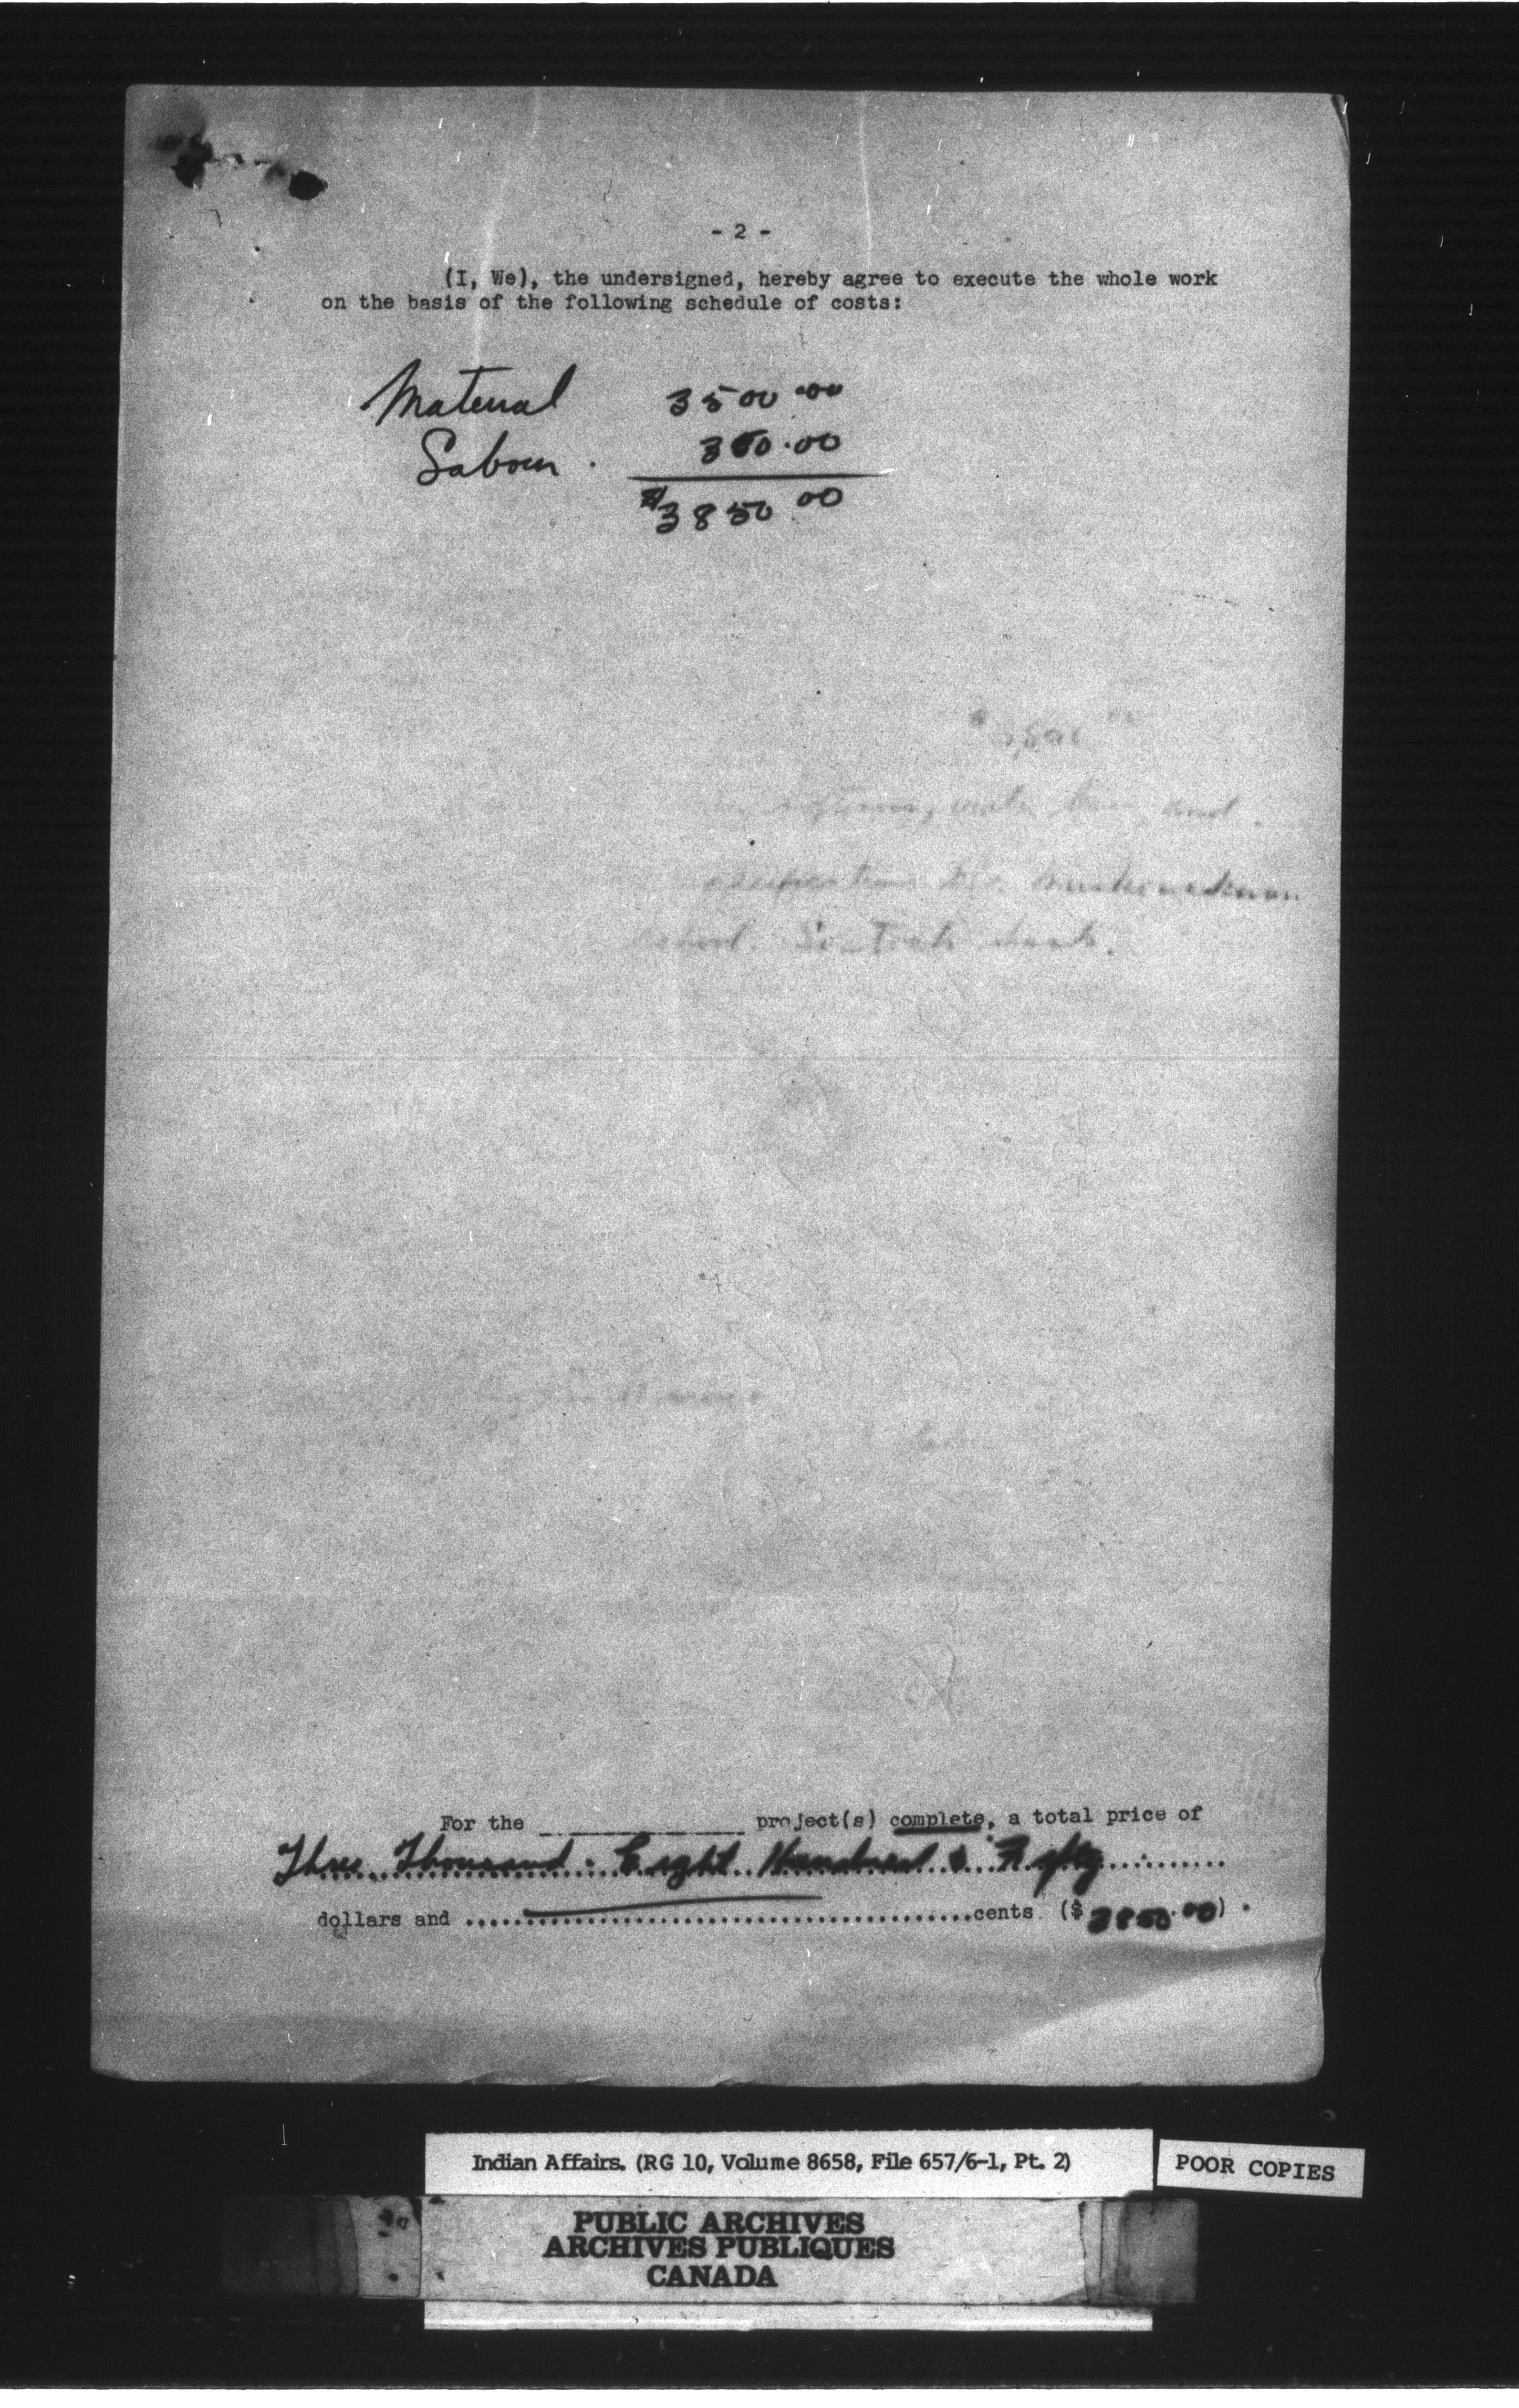 - 2 -
(I, We), the undersigned, hereby agree to execute the whole work
on the basis of the following schedule of costs:
Material 3500.00
Labour . 350.00
$3850.00
and
school.
For the ____________ project(s) complete, a total price of
Three Thousand - Eight Hundred & Fifty
dollars and ..........................................cents ($3850.00).
Indian Affairs. (RG 10, Volume 8658, File 657/6-1, Pt. 2)
POOR COPIES
PUBLIC ARCHIVES
ARCHIVES PUBLIQUES
CANADA